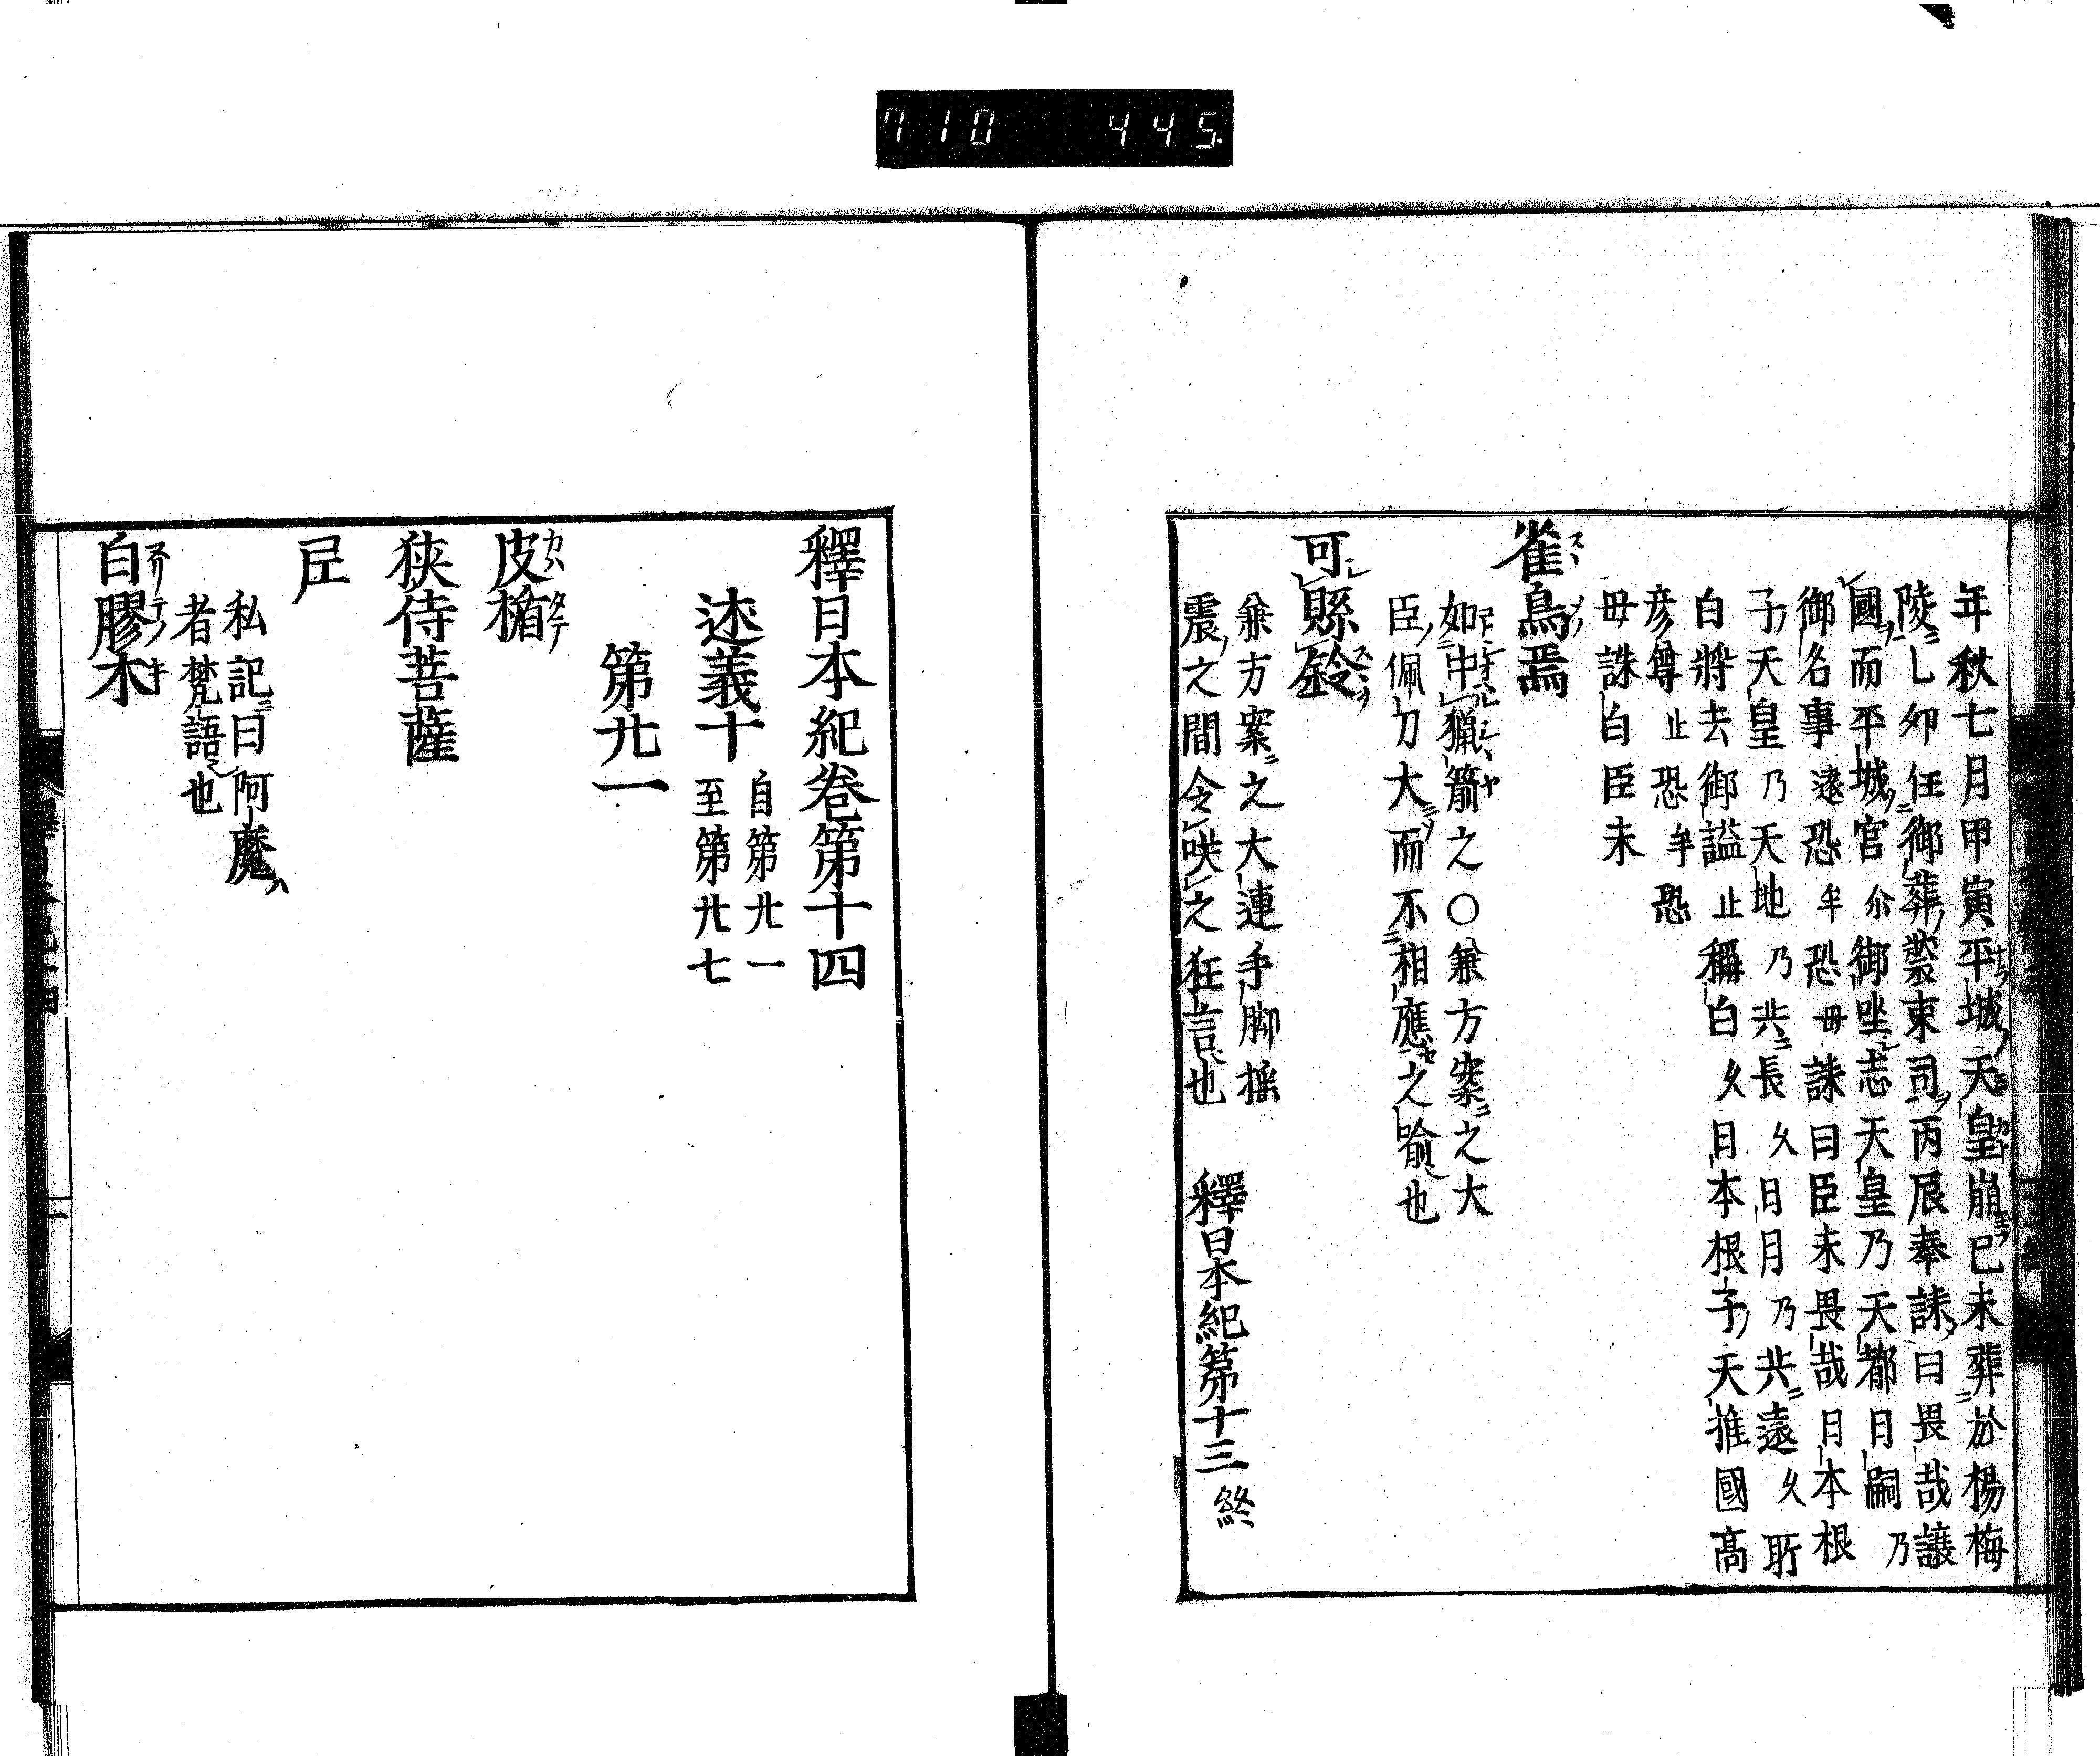 710 445
年秋七月甲寅平城天皇崩巳未葬於楊梅
陵乚夘任御葬裝束司丙辰奉誄曰畏哉讓
國而平城宮尒御坐志天皇乃天都日嗣乃
御名事遠恐牟恐毋誄曰臣未畏哉日本根
子天皇乃天地乃共長久日月乃共遠久所
白將去御謚止稱白久日本根子天推國高
彦尊止恐牟恐
毋誄白臣未
雀鳥焉
如中獵箭之○兼方案之大
臣佩刀大而不相應之喻也
可縣鈴
兼方案之大連手脚揺
震之間令咲之狂言也
釋日本紀第十三終
釋日本紀卷第十四
述義十
自第廿一
至第廿七
第廿一
皮楯
狭侍菩薩
𡰱
私記曰阿魔
者梵語也
白膠木